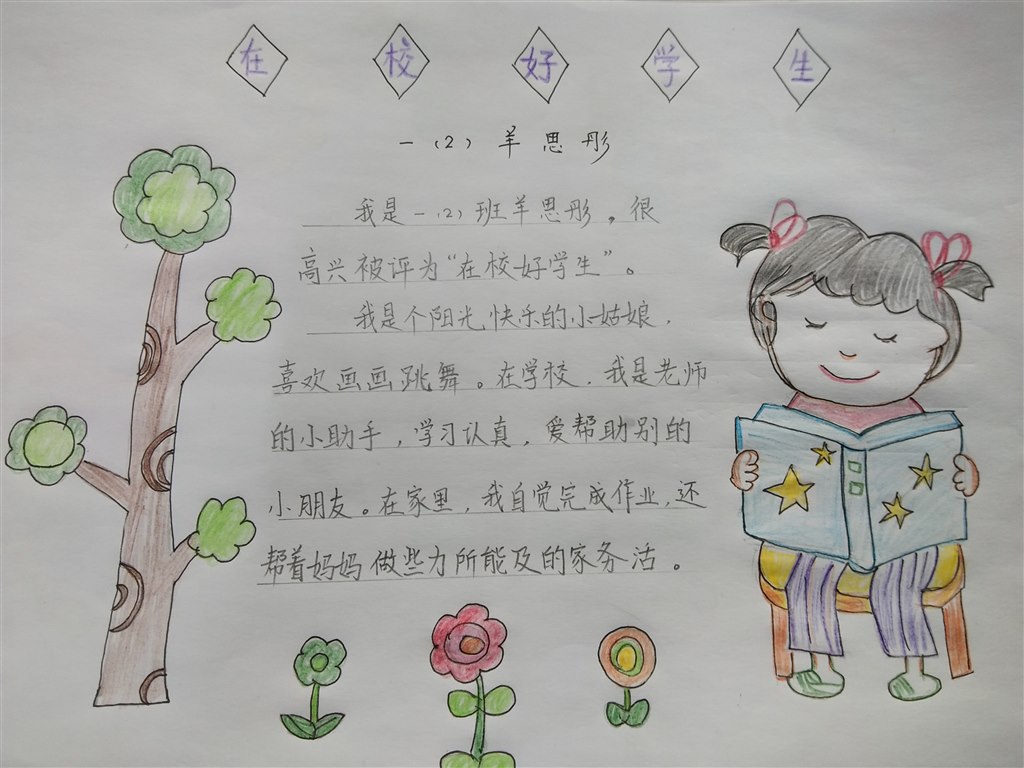 在校好学生
一（2） 羊思彤
我是一（2）班羊思彤。很
高兴被评为“在校好学生”。
我是个阳光快乐的小姑娘，
喜欢画画跳舞。在学校，我是老师
的小助手，学习认真，爱帮助别的
小朋友。在家里，我自觉完成作业，还
帮着妈妈做些力所能及的家务活。